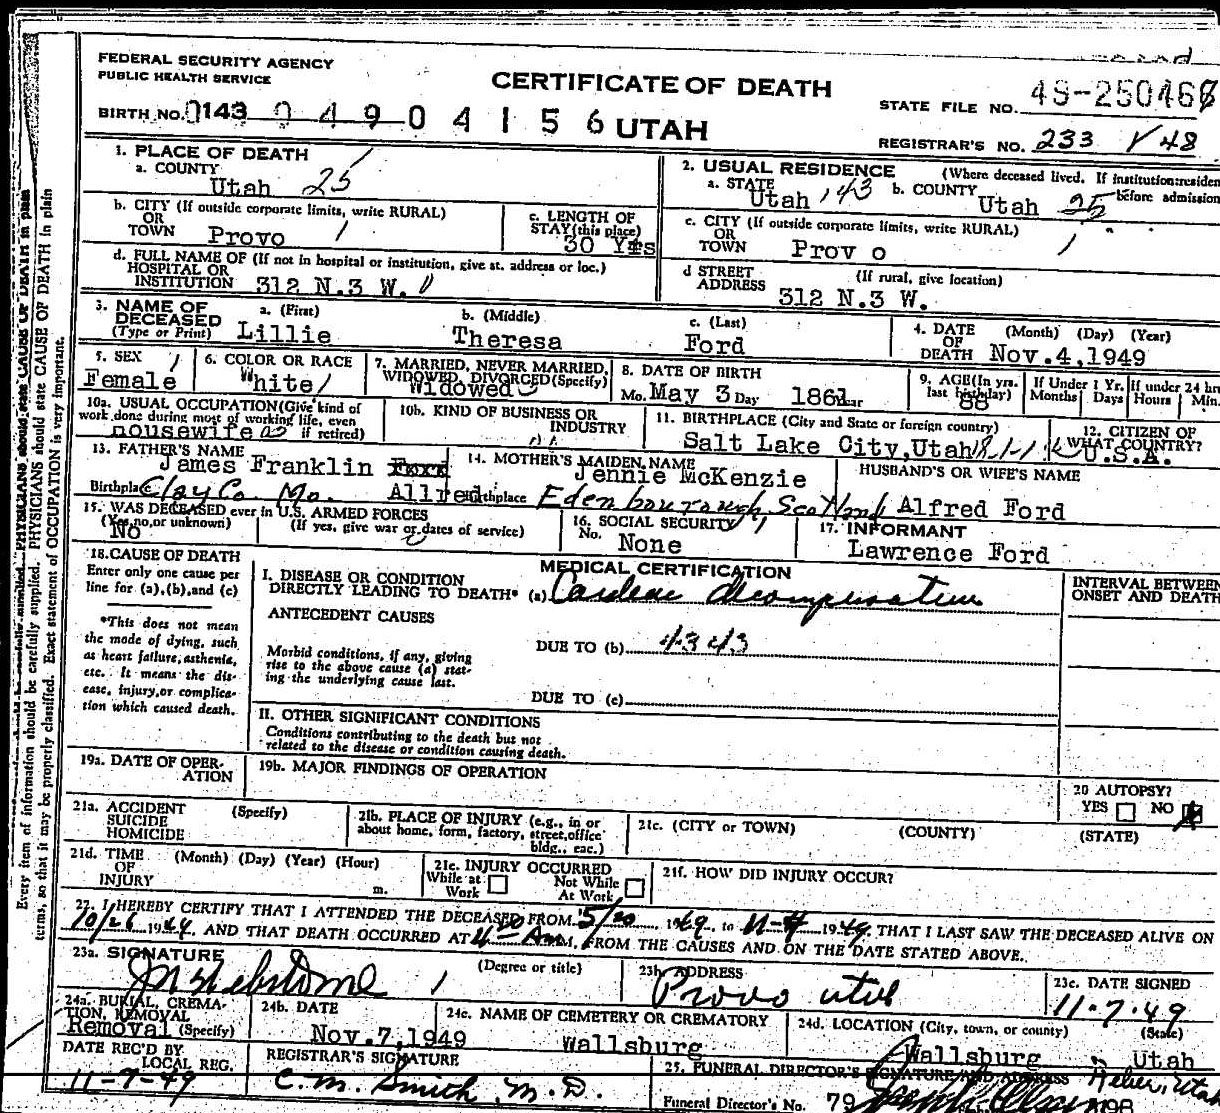 FEDERAL SECURITY AGENCY
PUBLIC HEALTH SERVICE
CERTIFICATE OF DEATH
STATE FILE NO.
BIRTH NO. 0143 0 4 9 0 4 1 5 6 UTAH
REGISTRAR'S NO. 233 48
1. PLACE OF DEATH
a. COUNTY
Utah 25
2. USUAL RESIDENCE (Where deceased lived. If institution:residen
before admission
a. STATE Utah 143 b. COUNTY Utah 25
b. CITY (If outside corporate limits, write RURAL)
OR
TOWN Provo 1
c. LENGTH OF
STAY (this place)
30 Yrs
c. CITY (If outside corporate limits, write RURAL)
OR
TOWN Prov o 1
d. FULL NAME OF (If not in hospital or institution, give st. address or loc.)
HOSPITAL OR
INSTITUTION 312 N.3 W.
d STREET (If rural, give location)
ADDRESS 312 N.3 W.
3. NAME OF DECEASED
(Type or Print)
a. (First) Lillie
b. (Middle) Theresa
c. (Last) Ford
4. DATE OF DEATH (Month) (Day) (Year)
Nov.4,1949
5. SEX 1
Female
6. COLOR OR RACE
White
7. MARRIED, NEVER MARRIED,
WIDOWED, DIVORCED (Specify)
Widowed
8. DATE OF BIRTH
Mo. May 3 Day 1861 Year
9. AGE (In yrs.
last birthday)
88
If Under 1 Yr.
Months Days
If under 24 hr
Hours Min.
10a. USUAL OCCUPATION (Give kind of
work done during most of working life, even
if retired)
housewife
10b. KIND OF BUSINESS OR
INDUSTRY
11. BIRTHPLACE (City and State or foreign country)
Salt Lake City,Utah
12. CITIZEN OF
WHAT COUNTRY?
U.S.A.
13. FATHER'S NAME
James Franklin Ford
Allred
Birthplace Clay Co. Mo.
14. MOTHER'S MAIDEN NAME
Jennie McKenzie
Birthplace Edenbourough Scotland
HUSBAND'S OR WIFE'S NAME
Alfred Ford
15. WAS DECEASED ever in U.S. ARMED FORCES
(Yes,no,or unknown) (If yes, give war or dates of service)
No
16. SOCIAL SECURITY
No. None
17. INFORMANT
Lawrence Ford
MEDICAL CERTIFICATION
18. CAUSE OF DEATH
Enter only one cause per
line for (a),(b),and (c)
*This does not mean
the mode of dying, such
as heart failure, asthenia,
etc. It means the dis-
ease, injury, or complica-
tion which caused death.
I. DISEASE OR CONDITION
DIRECTLY LEADING TO DEATH* (a) Cardiac decompensation
INTERVAL BETWEEN
ONSET AND DEATH
ANTECEDENT CAUSES
DUE TO (b) 4343
Morbid conditions, if any, giving
rise to the above cause (a) stat-
ing the underlying cause last.
DUE TO (c)
II. OTHER SIGNIFICANT CONDITIONS
Conditions contributing to the death but not
related to the disease or condition causing death.
19a. DATE OF OPER-
ATION
19b. MAJOR FINDINGS OF OPERATION
20 AUTOPSY?
YES NO
21a. ACCIDENT (Specify)
SUICIDE
HOMICIDE
21b. PLACE OF INJURY (e.g., in or
about home, form, factory, street,office
bldg., eac.)
21c. (CITY or TOWN) (COUNTY) (STATE)
21d. TIME (Month) (Day) (Year) (Hour)
OF
INJURY m.
21e. INJURY OCCURRED
While at Work
Not While At Work
21f. HOW DID INJURY OCCUR?
22. I HEREBY CERTIFY THAT I ATTENDED THE DECEASED FROM 5/20 1949, to 11-4 1949, THAT I LAST SAW THE DECEASED ALIVE ON
10/26 1949, AND THAT DEATH OCCURRED AT A M., FROM THE CAUSES AND ON THE DATE STATED ABOVE.
23a. SIGNATURE (Degree or title)
23b. ADDRESS
Provo utah
23c. DATE SIGNED
11-7-49
24a. BURIAL, CREMA-
TION, REMOVAL
Removal (Specify)
24b. DATE
Nov.7,1949
24c. NAME OF CEMETERY OR CREMATORY
Wallsburg
24d. LOCATION (City, town, or county) (State)
Wallsburg, Utah
DATE REC'D BY
LOCAL REG.
11-7-49
REGISTRAR'S SIGNATURE
C. M. Smith M.D.
25. FUNERAL DIRECTOR'S SIGNATURE AND ADDRESS Heber, Utah
Funeral Director's No. 79
Every item of information should be carefully supplied. PHYSICIANS should state CAUSE OF DEATH in plain
terms, so that it may be properly classified. Exact statement of OCCUPATION is very important.